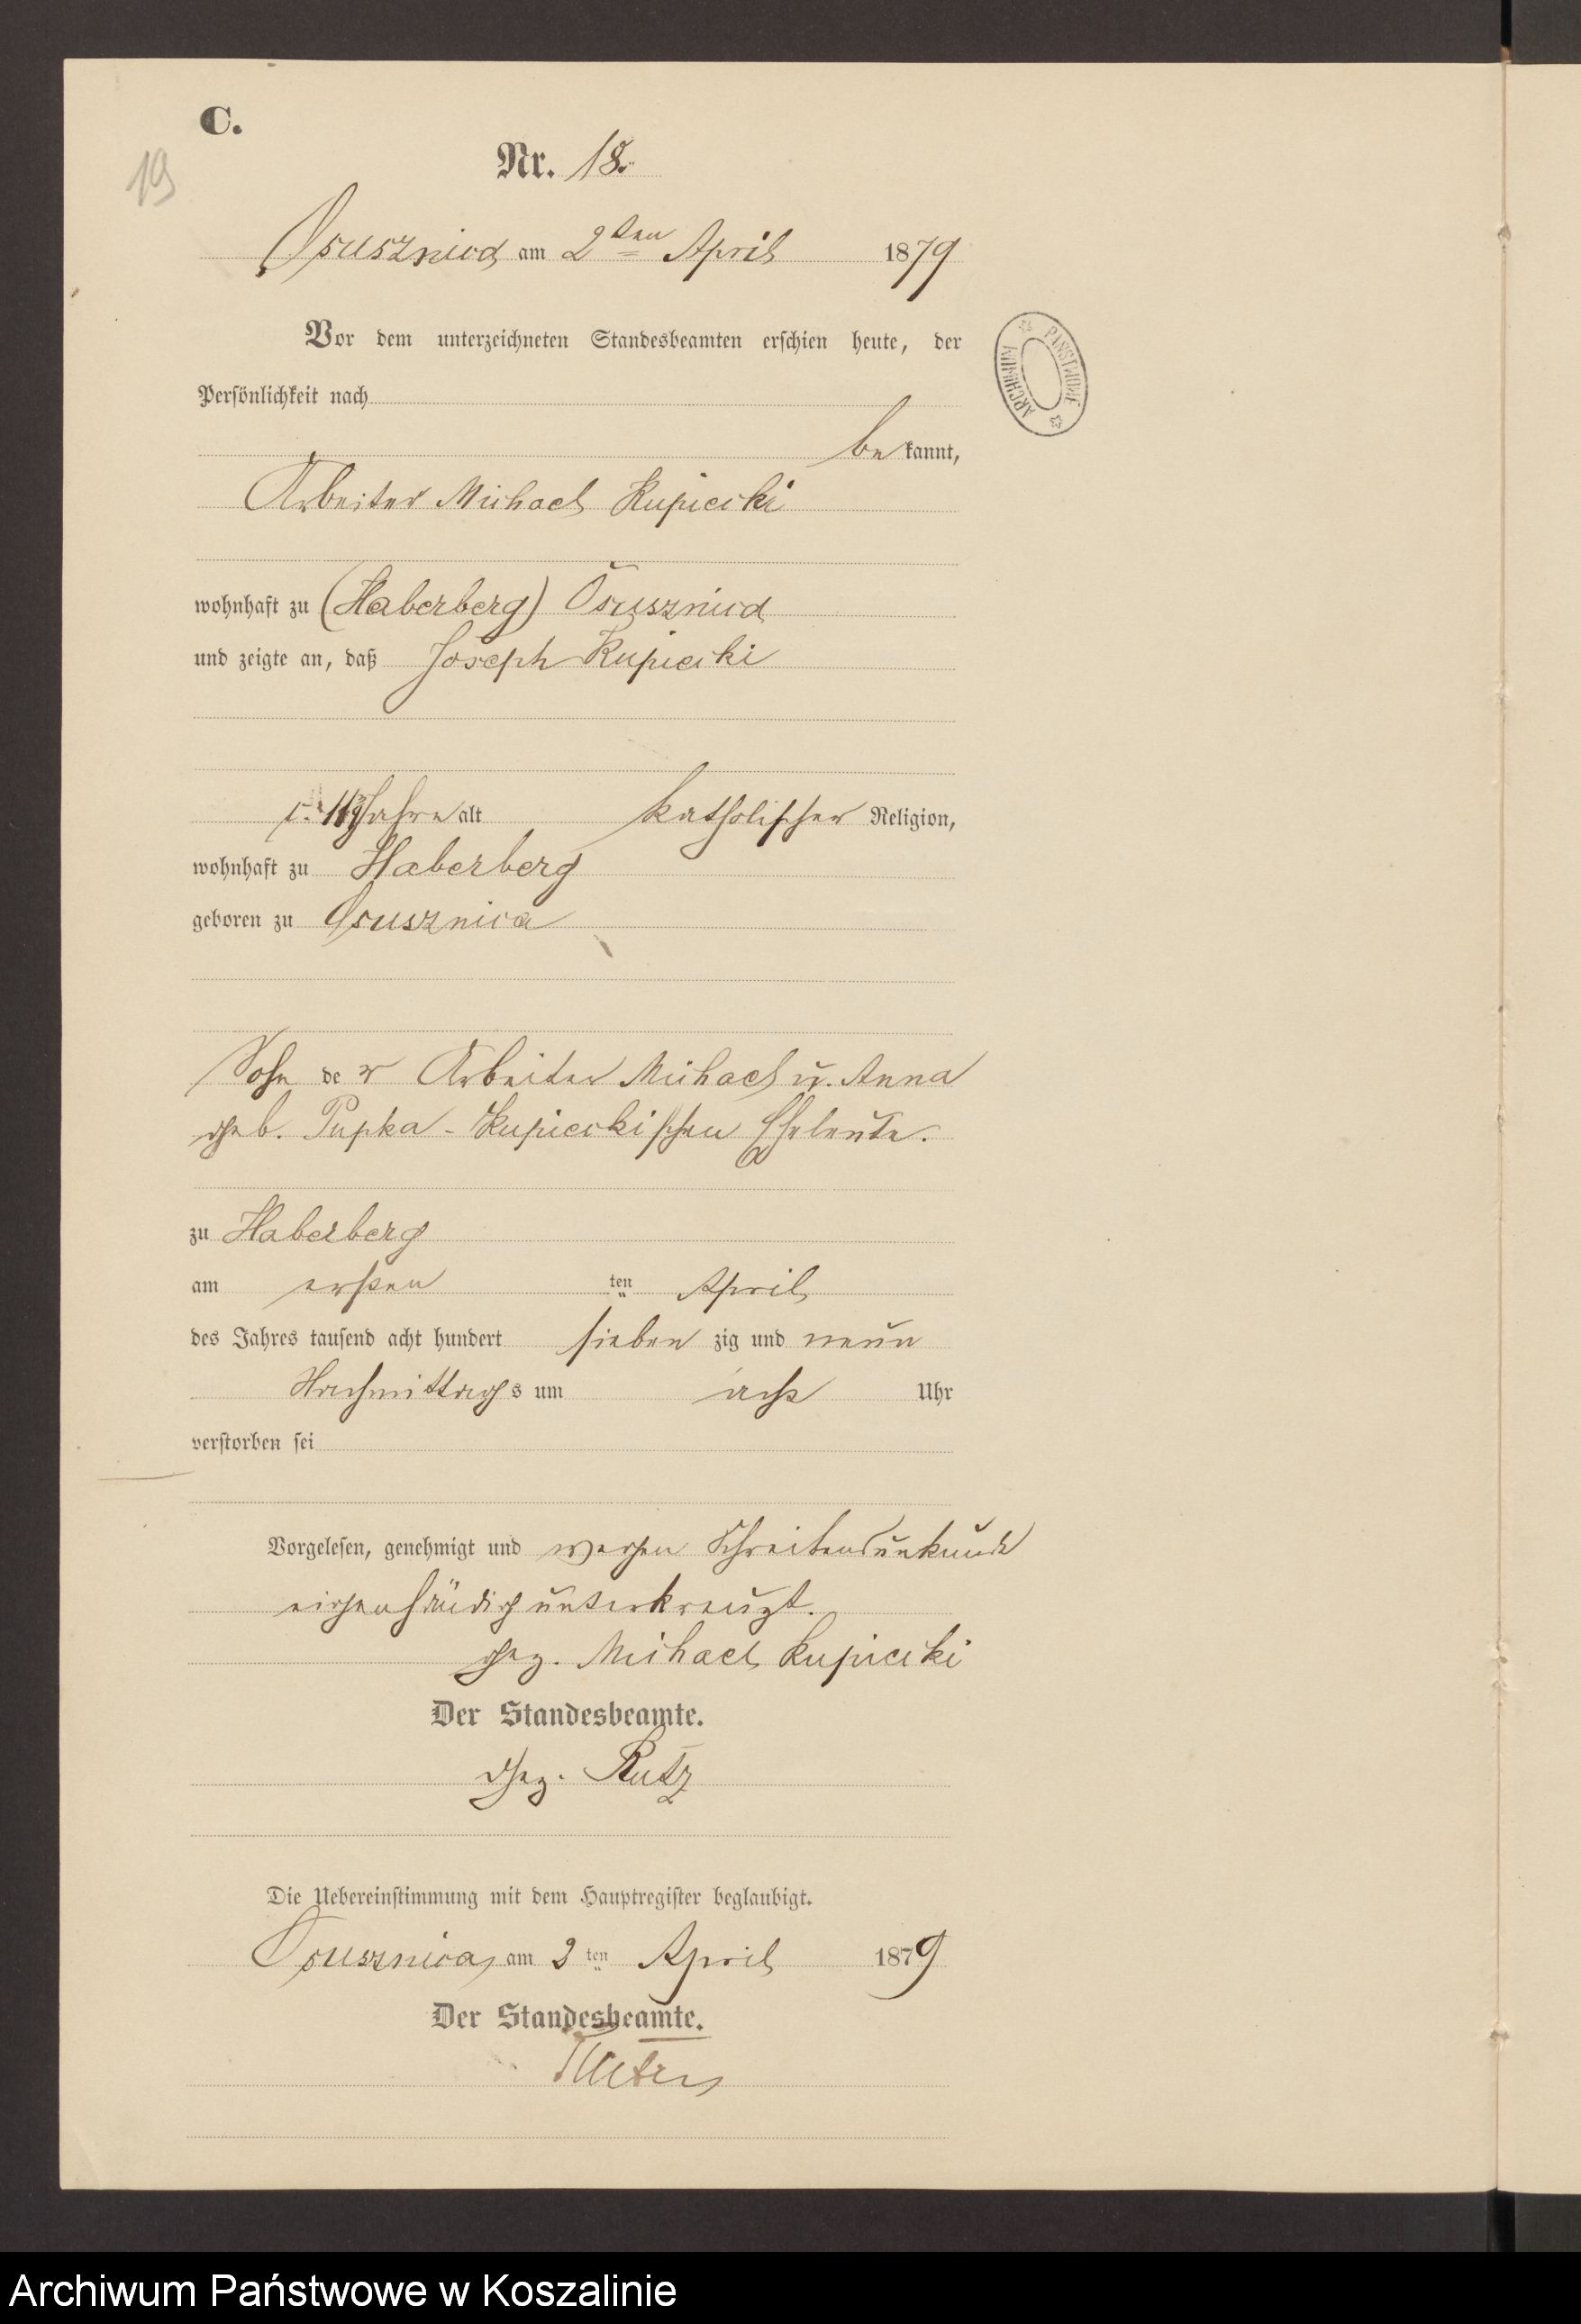 C.
19
Nr. 18.
Osusznica am 2ten April 1879
Vor dem unterzeichneten Standesbeamten erschien heute, der
Persönlichkeit nach
be kannt,
Arbeiter Michael Kupiecki
wohnhaft zu (Haberberg) Osusznica
und zeigte an, daß Joseph Kupiecki
Jahre alt katholischer Religion,
wohnhaft zu Haberberg
geboren zu Osusznica
Sohn de r Arbeiter Michael u. Anna
geb. Pupka-Kupieckischen Eheleute.
zu Haberberg
am ersten ten April
des Jahres tausend acht hundert sieben zig und neun
Nachmittags um acht Uhr
verstorben sei
Vorgelesen, genehmigt und wegen Schreibensunkunde
eigenhändig unterkreuzt.
gez. Michael Kupiecki
Der Standesbeamte.
gez. Rutz
Die Uebereinstimmung mit dem Hauptregister beglaubigt.
Osusznica, am 2 ten April 1879
Der Standesbeamte.
ARCHIWUM PAŃSTWOWE
Archiwum Państwowe w Koszalinie